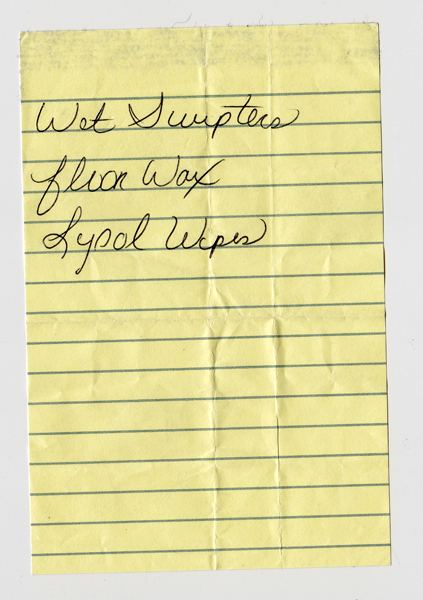 Wet Swipters
floor Wax
Lysol Wipes